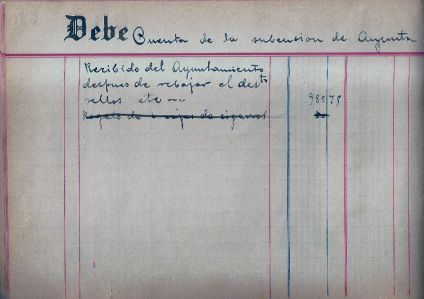 Debe Cuenta de la subencion de Ayunta
Recibido del Ayuntamiento
despues de rebajar el desto
sellos etc 985 75
Regalo de cajas de cigarros